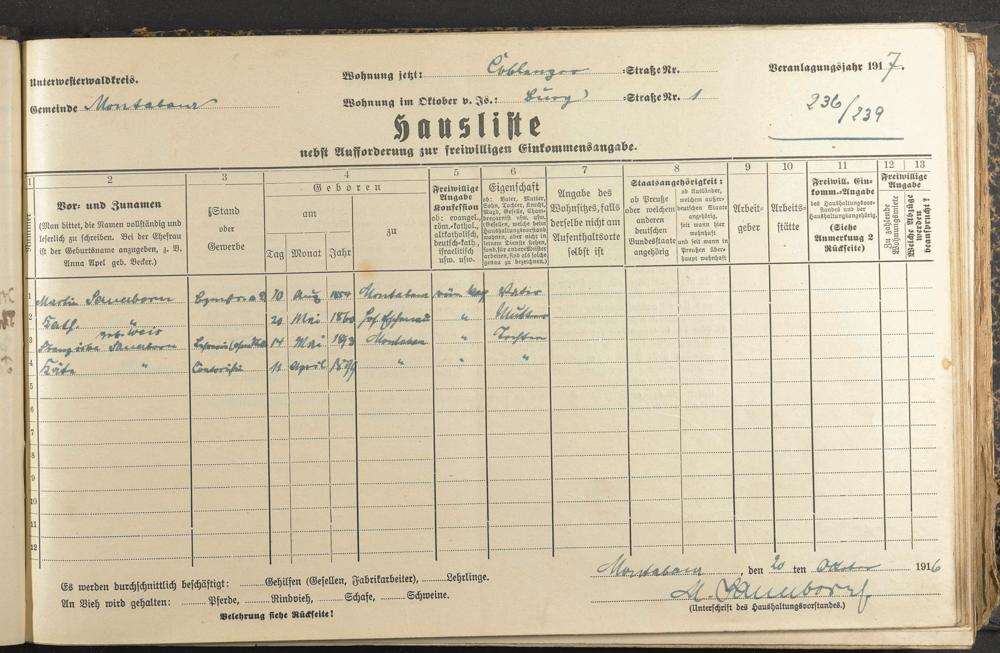 Unterwesterwaldkreis.
Gemeinde Montabaur
Wohnung jetzt: Coblenzer =Straße Nr.
Wohnung im Oktober v. Js.: Burg =Straße Nr. 1
Veranlagungsjahr 1917.
236/239
Hausliste
nebst Aufforderung zur freiwilligen Einkommensangabe.
1 2 3 4 5 6 7 8 9 10 11 12 13
Nummer
Vor- und Zunamen
(Man bittet, die Namen vollständig und
leserlich zu schreiben. Bei der Ehefrau
ist der Geburtsname anzugeben, z. B.
Anna Apel geb. Becker.)
Stand
oder
Gewerbe
Geboren
am
Tag Monat Jahr
zu
Freiwillige
Angabe
Konfession
ob: evangel.,
röm.-kathol.,
altkatholisch,
deutsch-kath.,
israelitisch
usw. usw.
Eigenschaft
ob: Vater, Mutter,
Sohn, Tochter, Knecht,
Magd, Geselle,
Angabe des
Wohnsitzes, falls
derselbe nicht am
Aufenthaltsorte
selbst ist
Staatsangehörigkeit:
ob Preuße
oder welchem
anderen
deutschen
Bundesstaate
angehörig
ob Ausländer,
welchem außer-
deutschen Staate
angehörig,
seit wann hier
wohnhaft
und seit wann in
Preußen über-
haupt wohnhaft
Arbeit-
geber
Arbeits-
stätte
Freiwill. Ein-
komm.-Angabe
des Haushaltungsvor-
standes und der
Haushaltungsangehörig.
(Siehe
Anmerkung 2
Rückseite)
Freiwillige
Angabe
Zu zahlende
Wohnungsmiete
Welche Abzüge
werden
beansprucht?
1 Martin Sauerborn 10 Aug Montabaur Vater
2 Kath. " 20 Mai 1860 " Mutter
geb. Weis
3 Franziska Sauerborn 14 Mai 1893 Montabaur " Tochter
4 Käte " 11 April 1899 " " "
5
6
7
8
9
10
11
12
Es werden durchschnittlich beschäftigt: Gehilfen (Gesellen, Fabrikarbeiter), Lehrlinge.
An Vieh wird gehalten: Pferde, Rindvieh, Schafe, Schweine.
Belehrung siehe Rückseite!
Montabaur, den 20 ten Oktober 1916
M. Sauerborn
(Unterschrift des Haushaltungsvorstandes.)